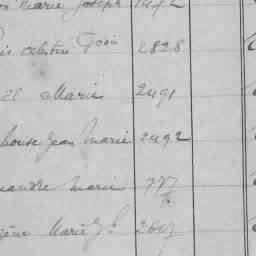 Marie Joseph
Célestin Goin 2828
el Marie 2491
phonse Jean Marie 2492
xandre Marie 777
gène Marie J. 2607